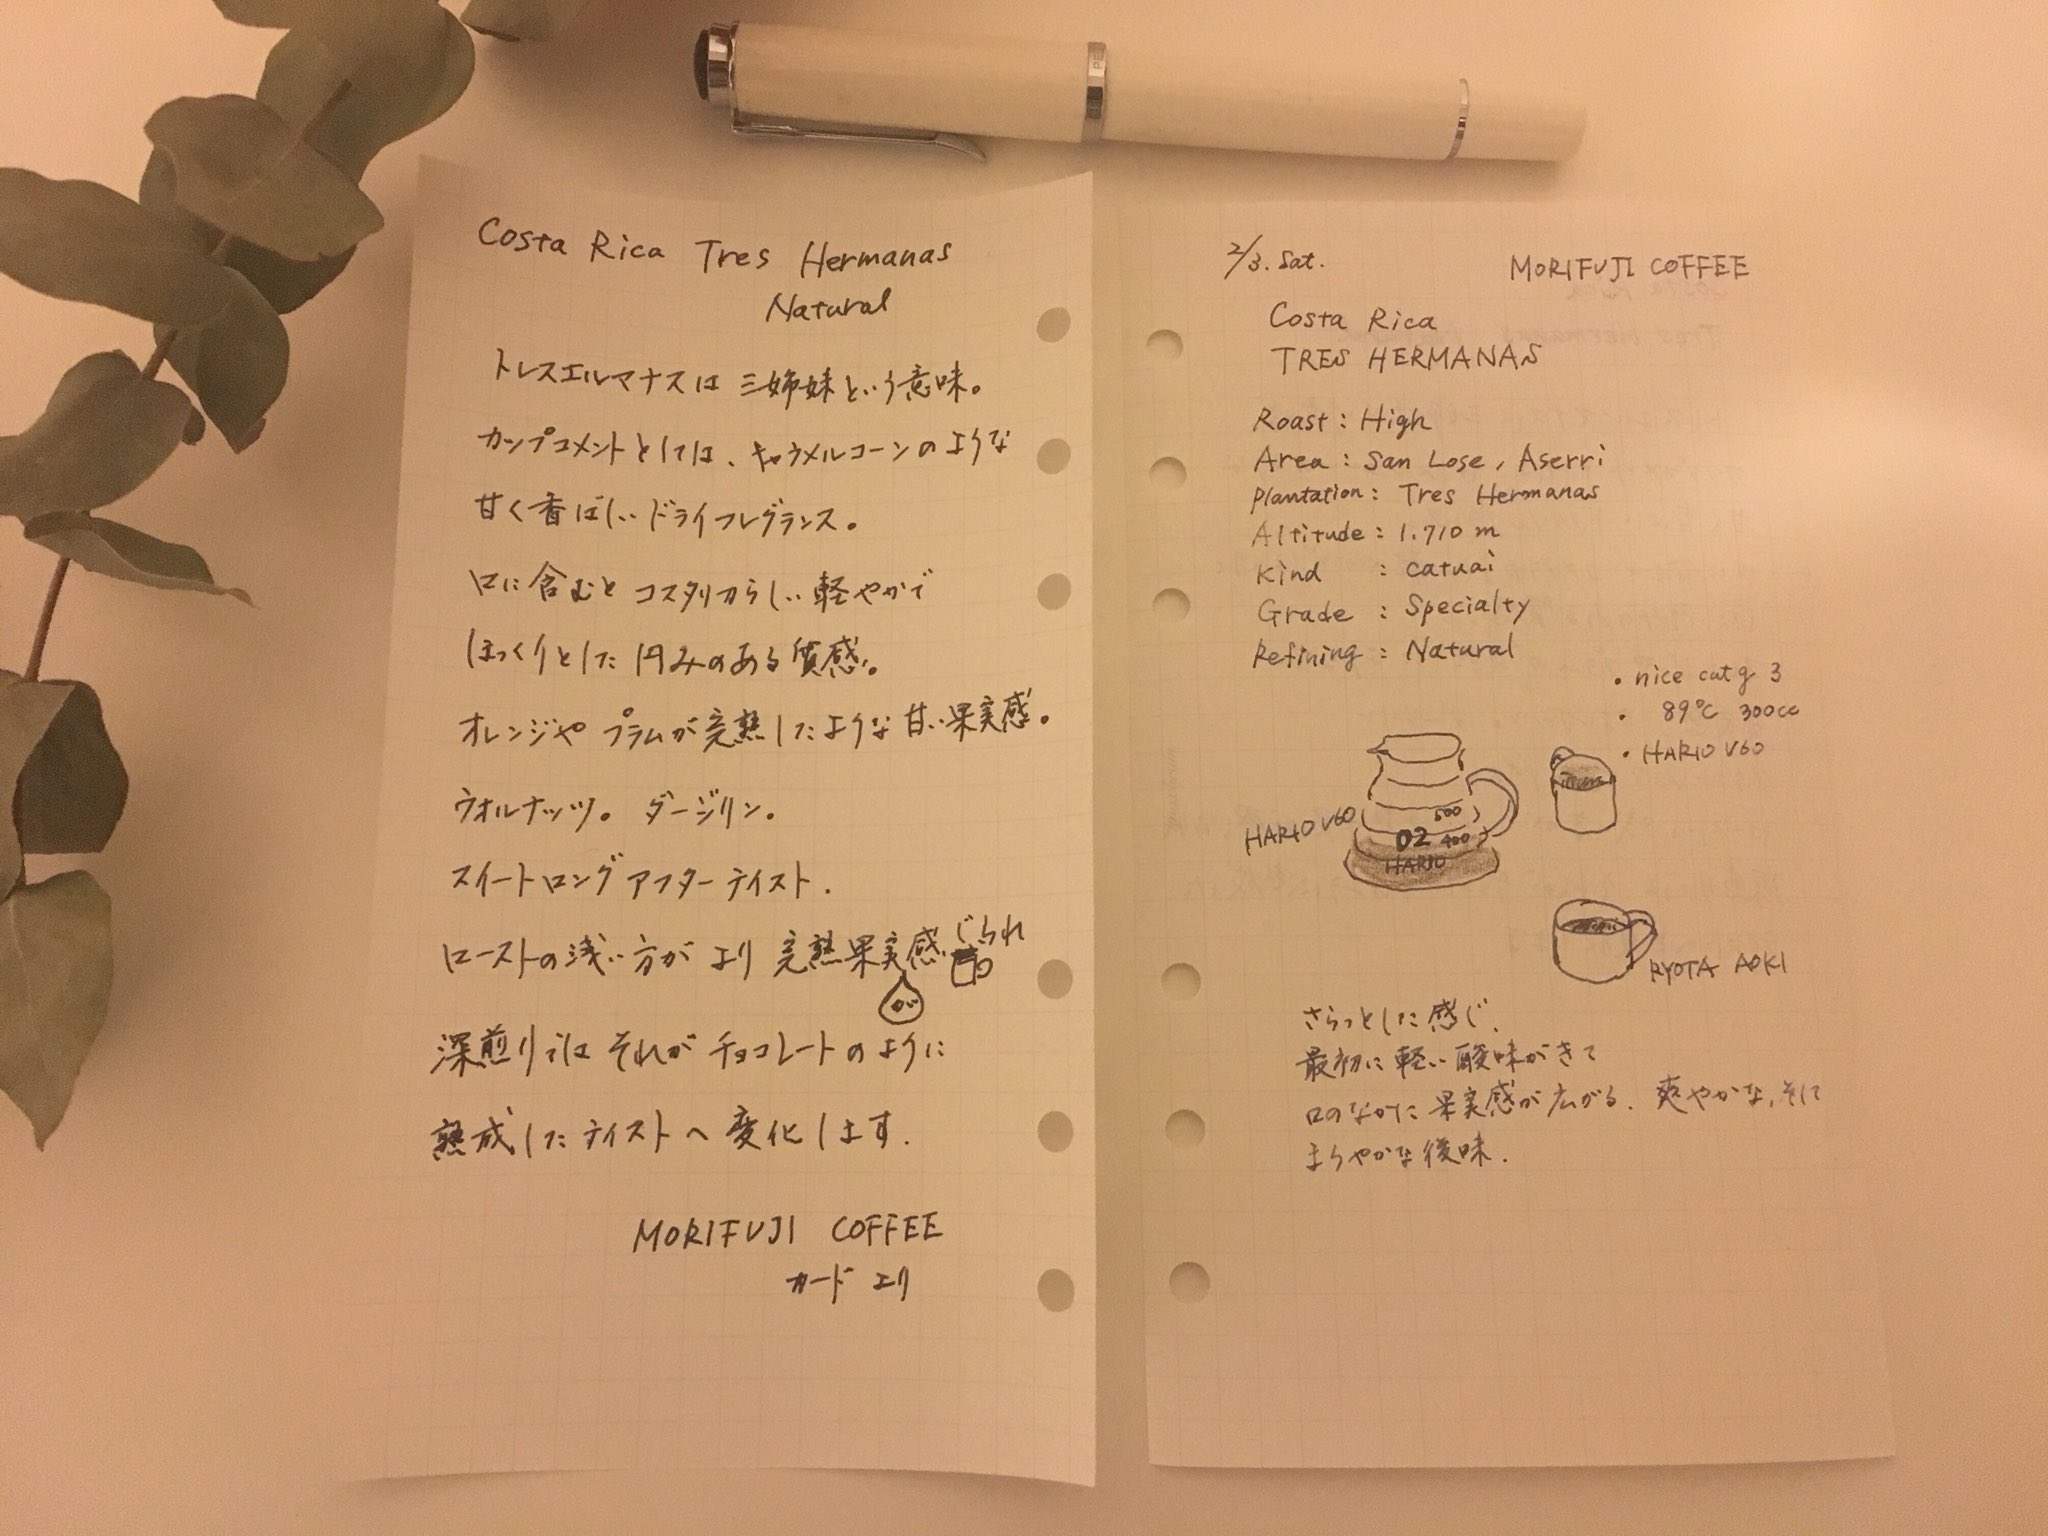 PE
Costa Rica Tres Hermanas
Natural
トレスエルマナスは三姉妹という意味。
カップコメントとしては、キャラメルコーンのような
甘く香ばしいドライフレグランス。
口に含むとコスタリカらしい軽やかで
ほっくりとした円みのある質感。
オレンジやプラムが完熟したような甘い果実感。
ウオルナッツ。ダージリン。
スイートロングアフターテイスト.
ローストの浅い方がより完熟果実感がじられ
深煎りではそれがチョコレートのように
熟成したテイストへ変化します.
MORIFUJI COFFEE
カードより
2/3. Sat.
MORIFUJI COFFEE
Costa Rica
TRES HERMANAS
Roast : High
Area : San Lose, Aserri
Plantation : Tres Hermanas
Altitude : 1.710 m
Kind : Catuai
Grade : Specialty
Refining : Natural
・nice cut g 3
・89℃ 300cc
・HARIO V60
HARIO V60
500
02 400
HARIO
RYOTA AOKI
さらっとした感じ、
最初に軽い酸味がきて
口のなかに果実感が広がる、爽やかな、そして
まろやかな後味.